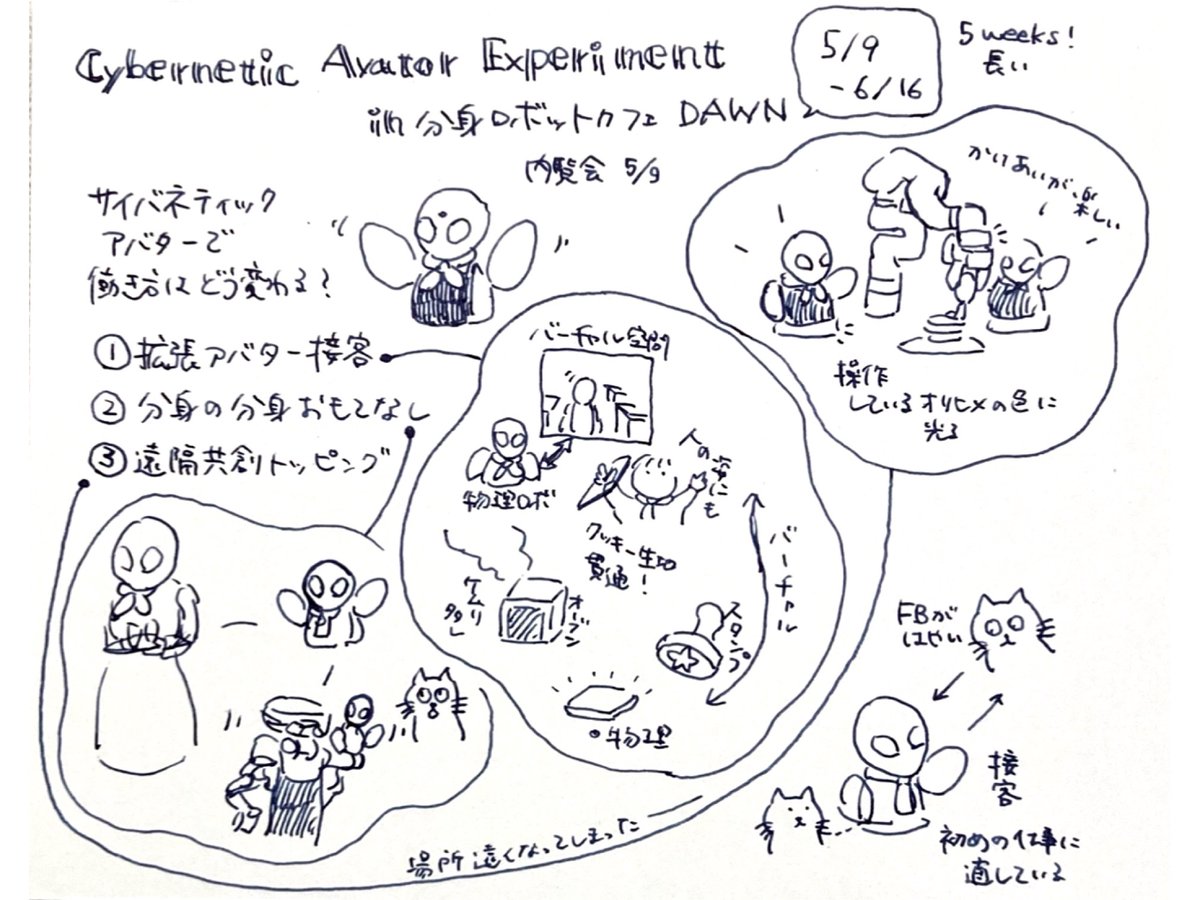 Cybernetic Avator Experiment
in 分身ロボットカフェ DAWN
内覧会 5/9
5/9
-6/16
5 weeks!
長い
サイバネティック
アバターで
働き方はどう変わる?
① 拡張アバター接客
② 分身の分身おもてなし
③ 遠隔共創トッピング
かけあいが、楽しい
操作
しているオリヒメの色に
光る
バーチャル空間
物理ロボ
人の姿にも
クッキー生地
貫通!
バーチャル
ケムリ
オーブン
スタンプ
・物理
FBが
はやい
接客
初めの仕事に
適している
場所遠くなってしまった